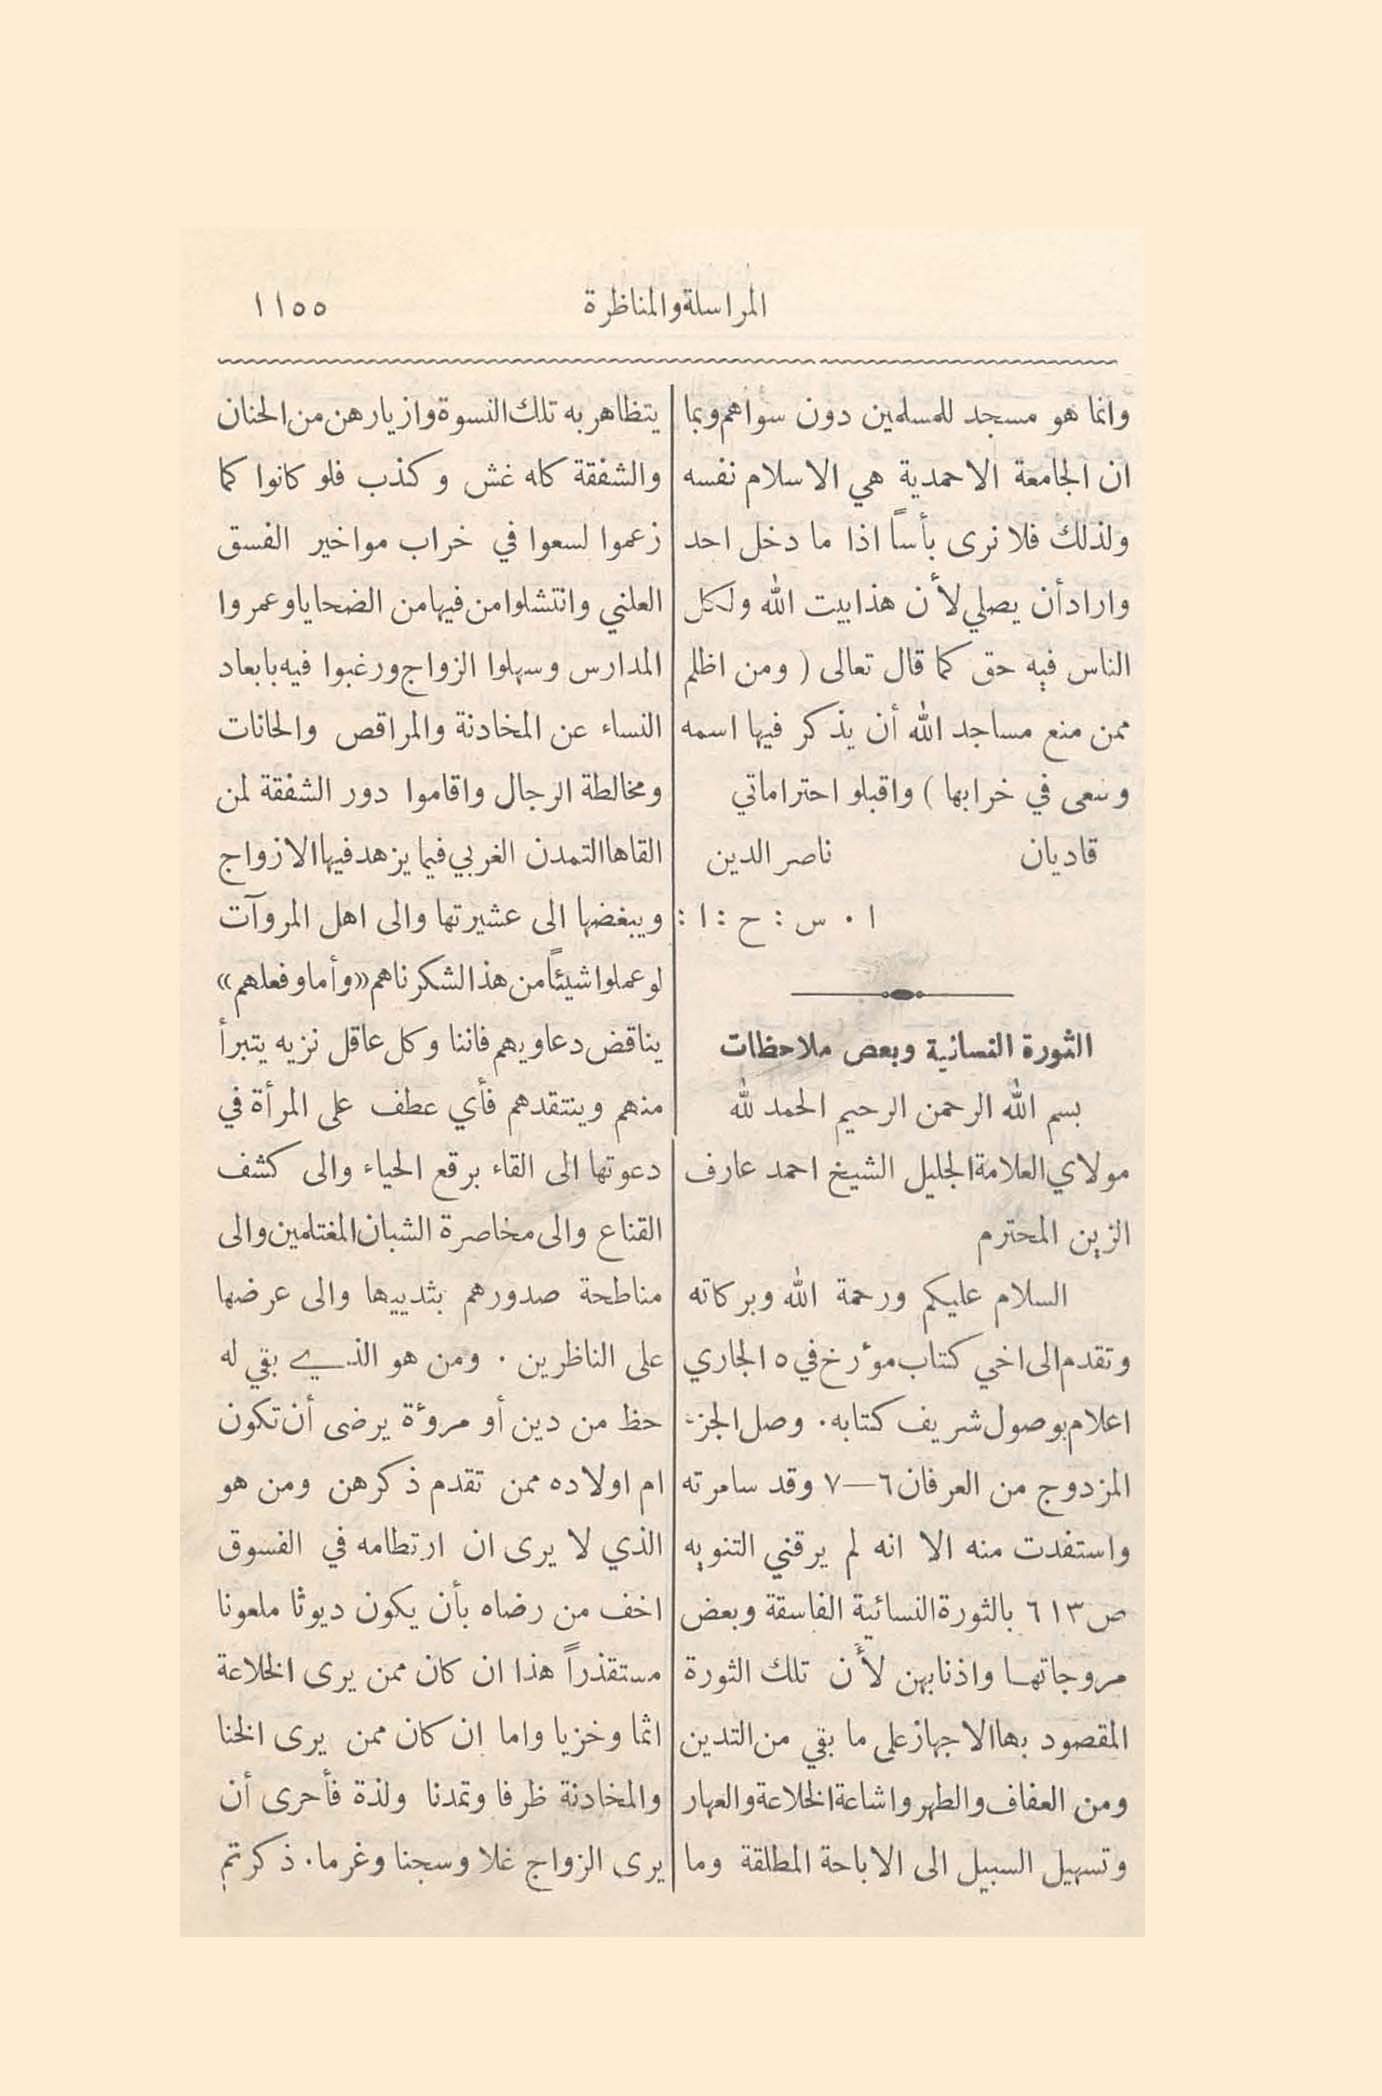 المراسلة والمناظرة
١١٥٥
وانما هو مسجد للمسلمين دون سواهم وبما
ان الجامعة الاحمدية هي الاسلام نفسه
ولذلك فلا نرى بأساً اذا ما دخل احد
واراد أن يصلي لأن هذا بيت الله ولكل
الناس فيه حق كما قال تعالى ( ومن اظلم
ممن منع مساجد الله أن يذكر فيها اسمه
وسعى في خرابها ) واقبلو احتراماتي
قاديان ناصر الدين
ا . س : ح : ا :
الثورة النسائية وبعض ملاحظات
بسم الله الرحمن الرحيم الحمد لله
مولاي العلامة الجليل الشيخ احمد عارف
الزين المحترم
السلام عليكم ورحمة الله وبركاته
وتقدم الى اخي كتاب مؤرخ في ٥ الجاري
اعلام بوصول شريف كتابه . وصل الجزء
المزدوج من العرفان ٦—٧ وقد سامرته
واستفدت منه الا انه لم يرقني التنويه
ص ٦١٣ بالثورة النسائية الفاسقة وبعض
مروجاتها واذنابهن لأن تلك الثورة
المقصود بها الاجهاز على ما بقي من التدين
ومن العفاف والطهر واشاعة الخلاعة والعهار
وتسهيل السبيل الى الاباحة المطلقة وما
يتظاهر به تلك النسوة وازيارهن من الحنان
والشفقة كله غش وكذب فلو كانوا كما
زعموا لسعوا في خراب مواخير الفسق
العلني وانتشلوا من فيها من الضحايا وعمروا
المدارس وسهلوا الزواج ورغبوا فيه بابعاد
النساء عن المخادنة والمراقص والحانات
ومخالطة الرجال واقاموا دور الشفقة لمن
القاها التمدن الغربي فيما يزهد فيها الازواج
ويبغضها الى عشيرتها والى اهل المروآت
لو عملوا شيئاً من هذا لشكرناهم «وأما وفعلهم»
يناقض دعاويهم فاننا وكل عاقل نزيه يتبرأ
منهم وينتقدهم فأي عطف على المرأة في
دعوتها الى القاء برقع الحياء والى كشف
القناع والى مخاصرة الشبان المغتلمين والى
مناطحة صدورهم بثدييها والى عرضها
على الناظرين . ومن هو الذي بقي له
حظ من دين أو مروءة يرضى أن تكون
ام اولاده ممن تقدم ذكرهن ومن هو
الذي لا يرى ان ارتطامه في الفسوق
اخف من رضاه بأن يكون ديوثا ملعونا
مستقذراً هذا ان كان ممن يرى الخلاعة
اثما وخزيا واما ان كان ممن يرى الخنا
والمخادنة ظرفا وتمدنا ولذة فأحرى أن
يرى الزواج غلا وسجنا وغرما . ذكرتم